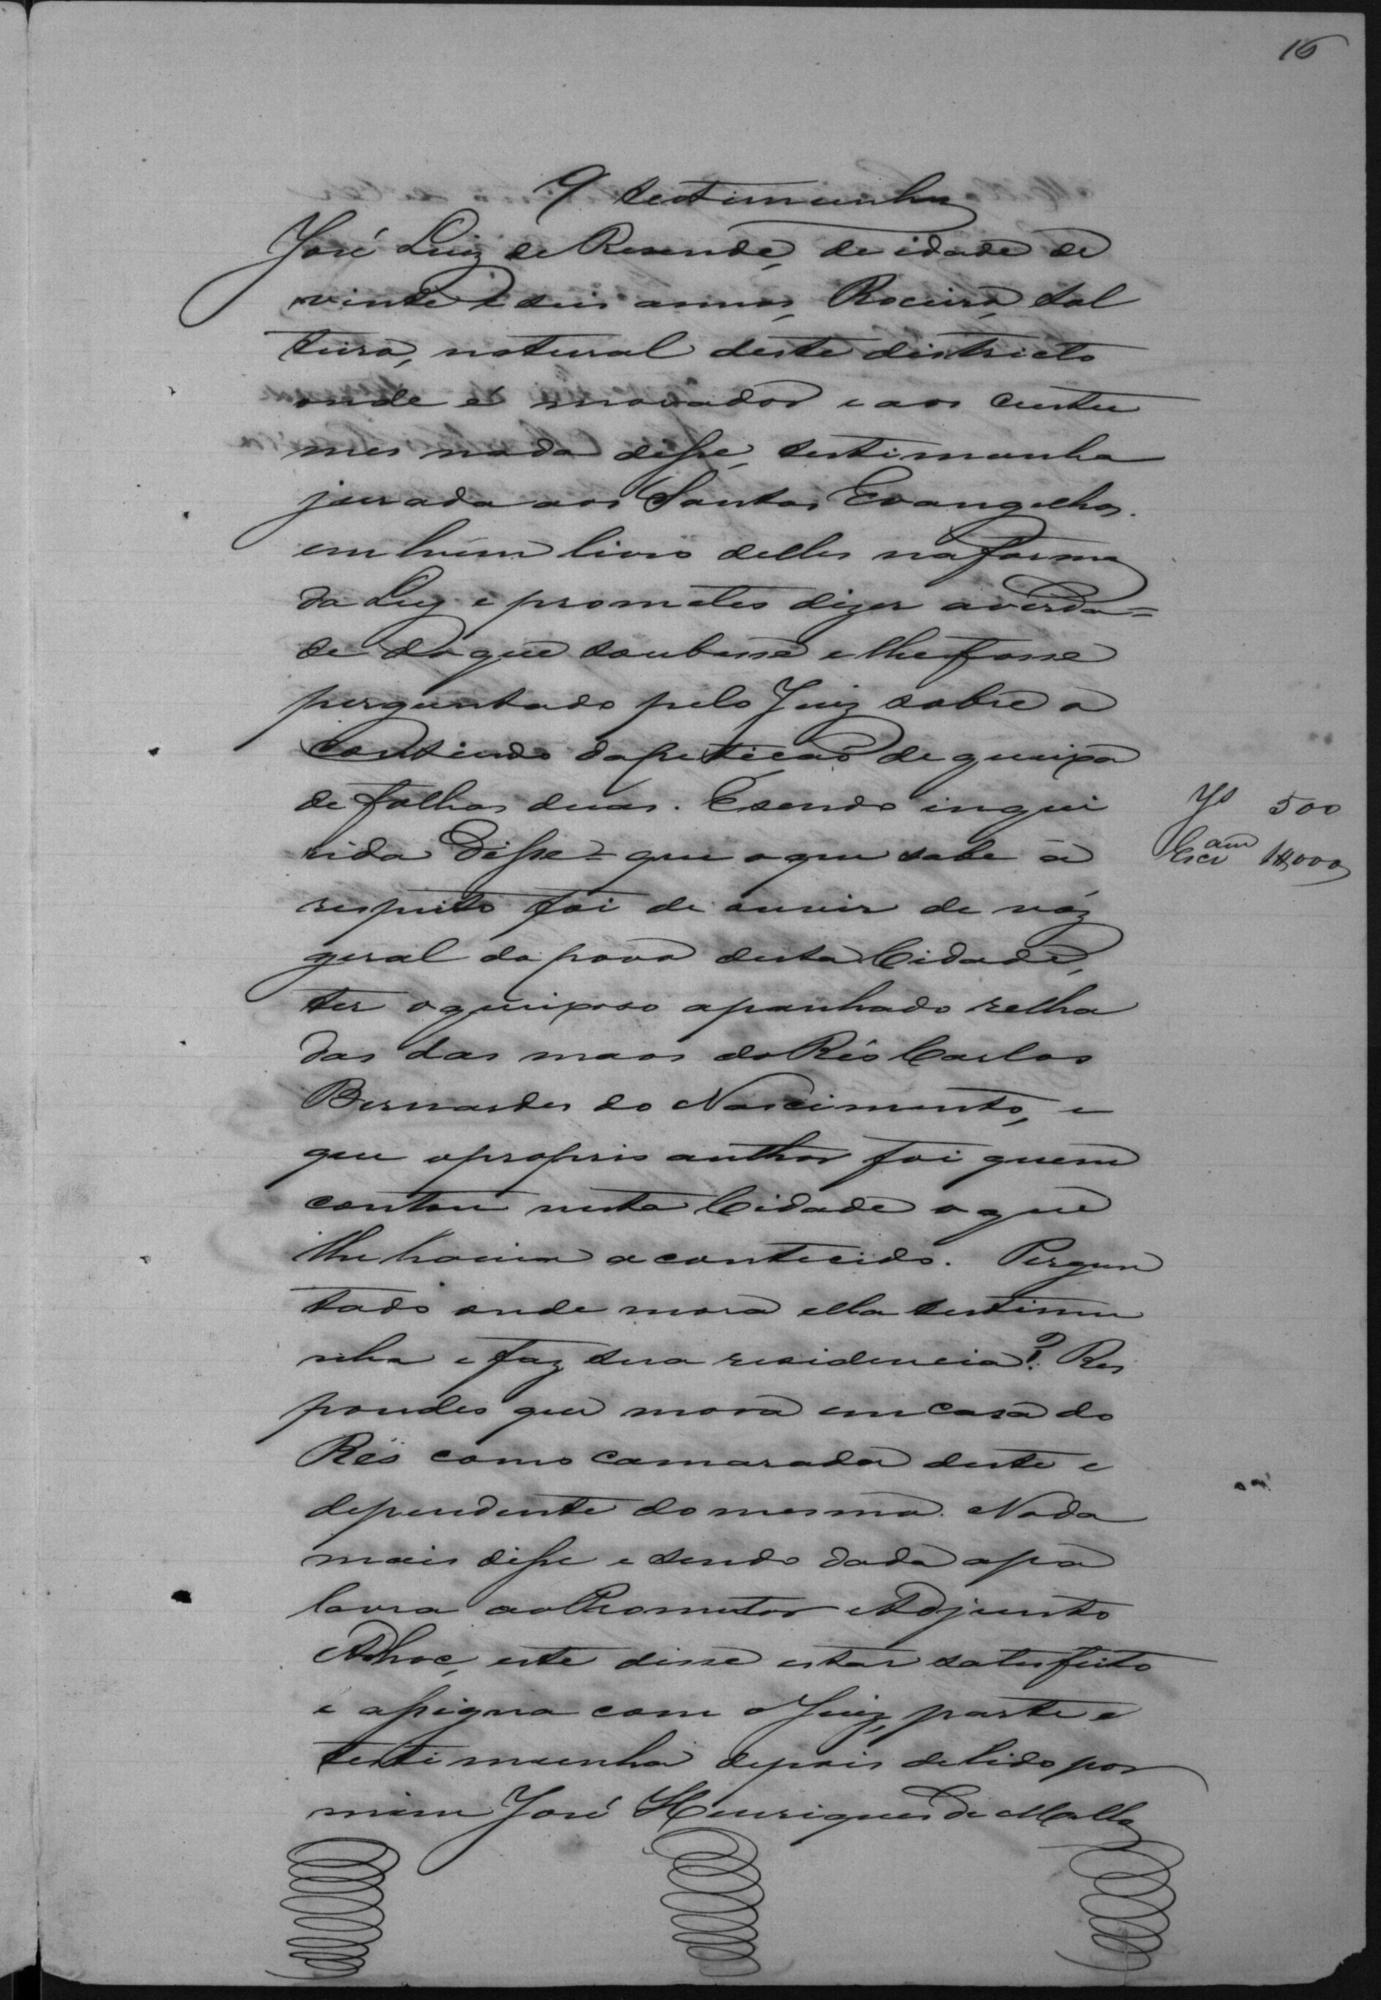 16
9 testimunha
José Luiz de Resende, de idade de
vinte e seis annos, Roceiro, sol
teiro, natural deste districto
onde é morador e aos custu
mes nada disse, testimunha
jurada aos Santos Evangelhos.
em hum livro delles na forma
da Ley e prometeo dizer a verda=
de do que soubesse e lhe fosse
perguntado pelo Juiz sobre o
contiudo da peticão de queixa
de folhas duas. E sendo inqui
rida Disse = que o que sabe á
respeito foi de ouvir de vóz
geral do povo desta Cidade,
ter o queixoso apanhado relha
das das maos do Réo Carlos
Bernardes do Nascimento, e
que o proprio author foi quem
contou nesta Cidade o que
lhe havia acontecido. Pergun
tado onde mora ella testimu
nha e faz sua residencia? Res
pondeo que mora em casa do
Réo como camarada deste e
dependente do mesmo. Nada
mais disse e sendo dada a pa
lavra ao Promotor Adjunto
Adhoc, este disse estar satisfeito
e assigna com o Juiz, parte e
testimunha depois de lido por
mim José Henriques de Mello
Js 500
Escam 1$000